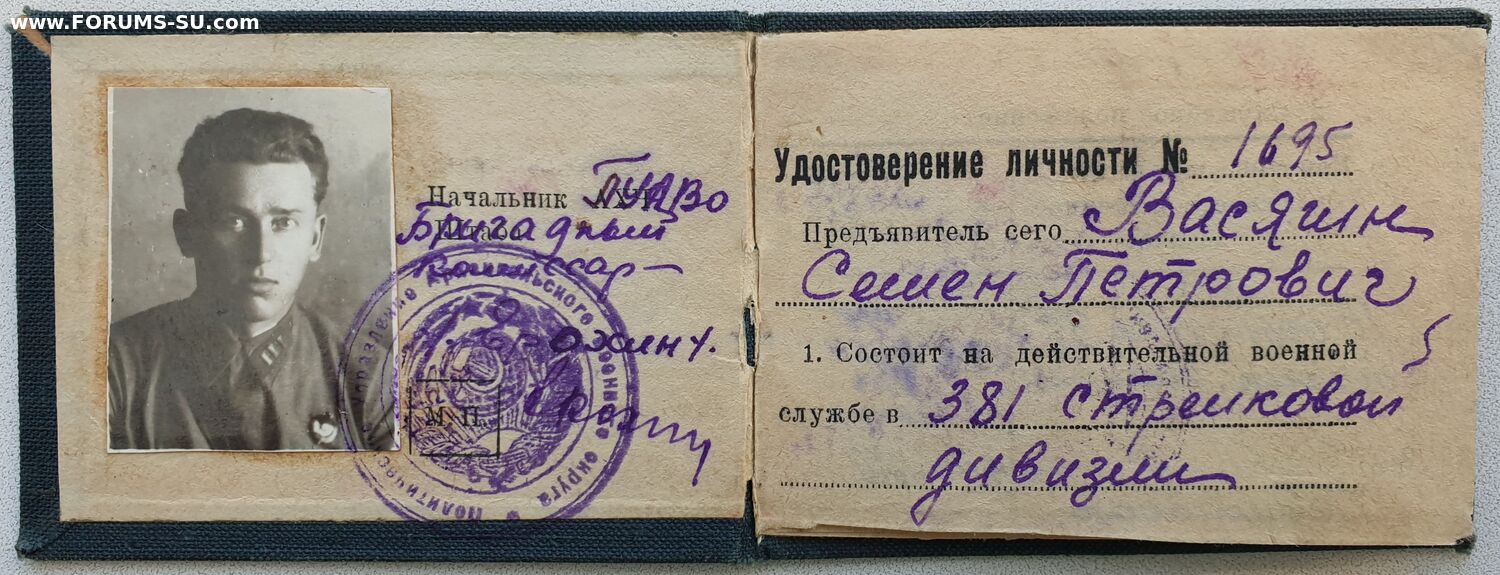 www.FORUMS-SU.com
Начальник
Штаба
Бригадный
Комиссар -
М. П.
Управление Архангельского Военного округа
Политическое
Удостоверение личности № 1695
Предъявитель сего Васягин
Семен Петрович
1. Состоит на действительной военной
службе в 381 стрелковой
дивизии